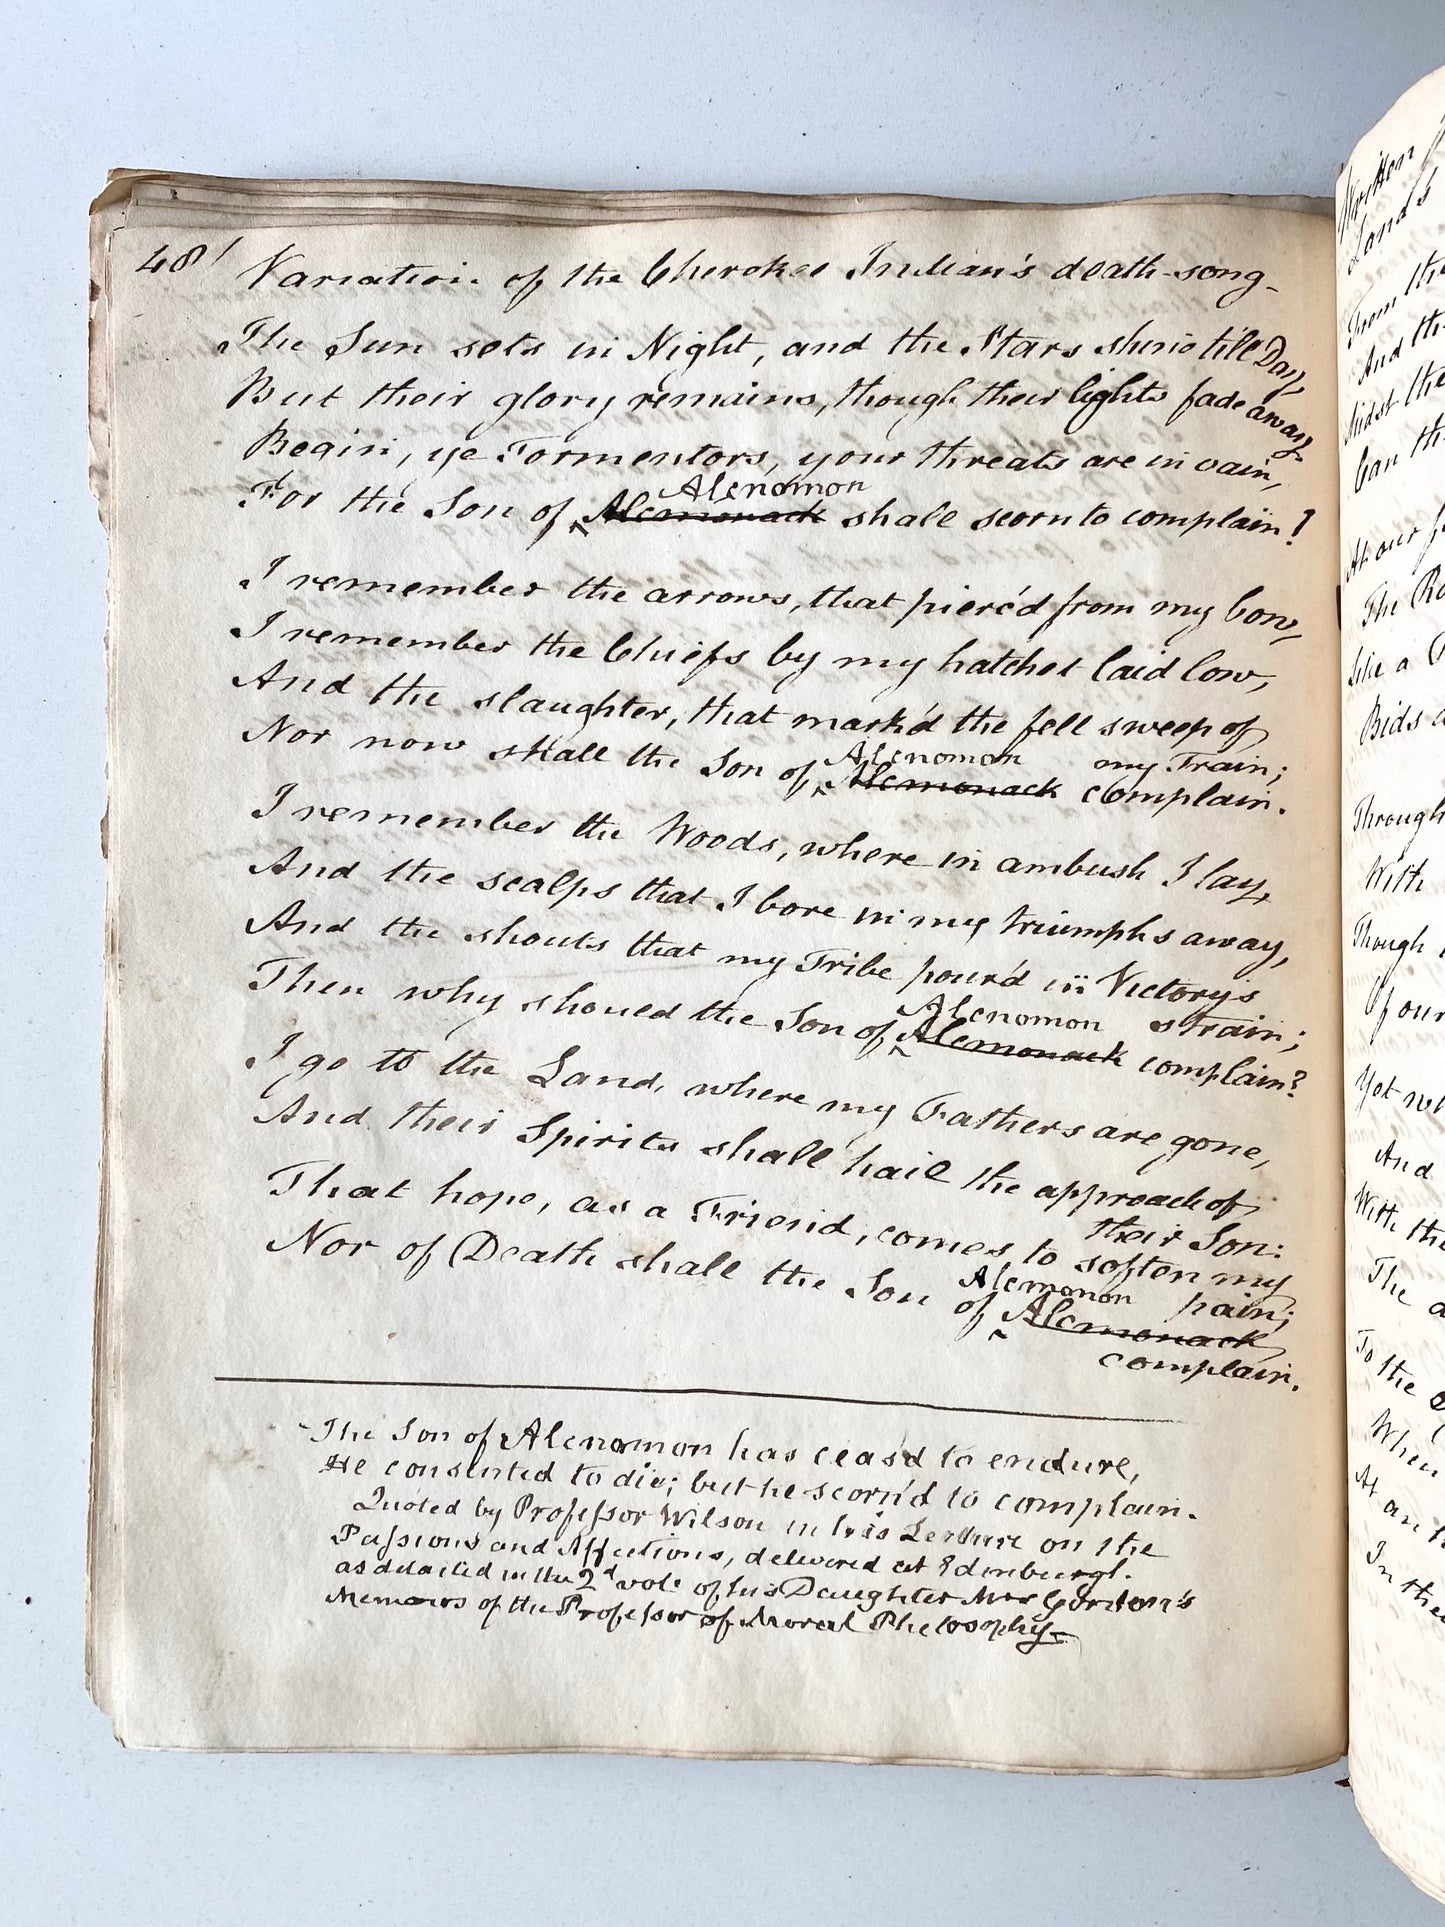 48
Variation of the Cherokee Indian's death-song-
The Sun sets in Night, and the Stars shine till Day,
But their glory remains, though their lights fade away.
Begin, ye Tormentors, your threats are in vain,
Alcnomon
For the Son of ‸ Alcmonack shall scorn to complain!
I remember the arrows, that pierc'd from my bow,
I remember the Chiefs by my hatchet laid low,
And the slaughter, that mark'd the fell sweep of
my Train;
Alcnomon
Nor now shall the Son of ‸ Alcmonack complain.
I remember the Woods, where in ambush I lay,
And the scalps that I bore in my triumphs away,
And the shouts that my Tribe pour'd in Victory's
strain;
Alcnomon
Then why should the Son of ‸ Alcmonack complain?
I go to the Land, where my Fathers are gone,
And their Spirits shall hail the approach of
their Son:
That hope, as a Friend, comes to soften my
pain;
Alcmonon
Nor of Death shall the Son of ‸ Alcmonack
complain.
The Son of Alcnomon has ceas'd to endure,
He consented to die; but he scorn'd to complain.
Quoted by Professor Wilson in his Lecture on the
Passions and Affections, delivered at Edinburgh.
as detailed in the 2d vol. of his Daughter Mrs Gordon's
Memoirs of the Professor of Moral Philosophy-
Written
Land's
From the
And th
Midst the
Can th
At our
The Ro
Like a
Bids
Through
With
Though
Of our
Yet wh
And
With the
The
To the
When
At an
In the